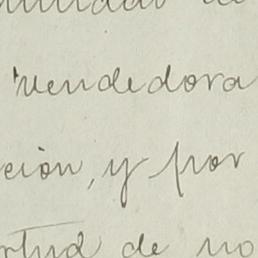 vendedora
ción, y por
rtud de no